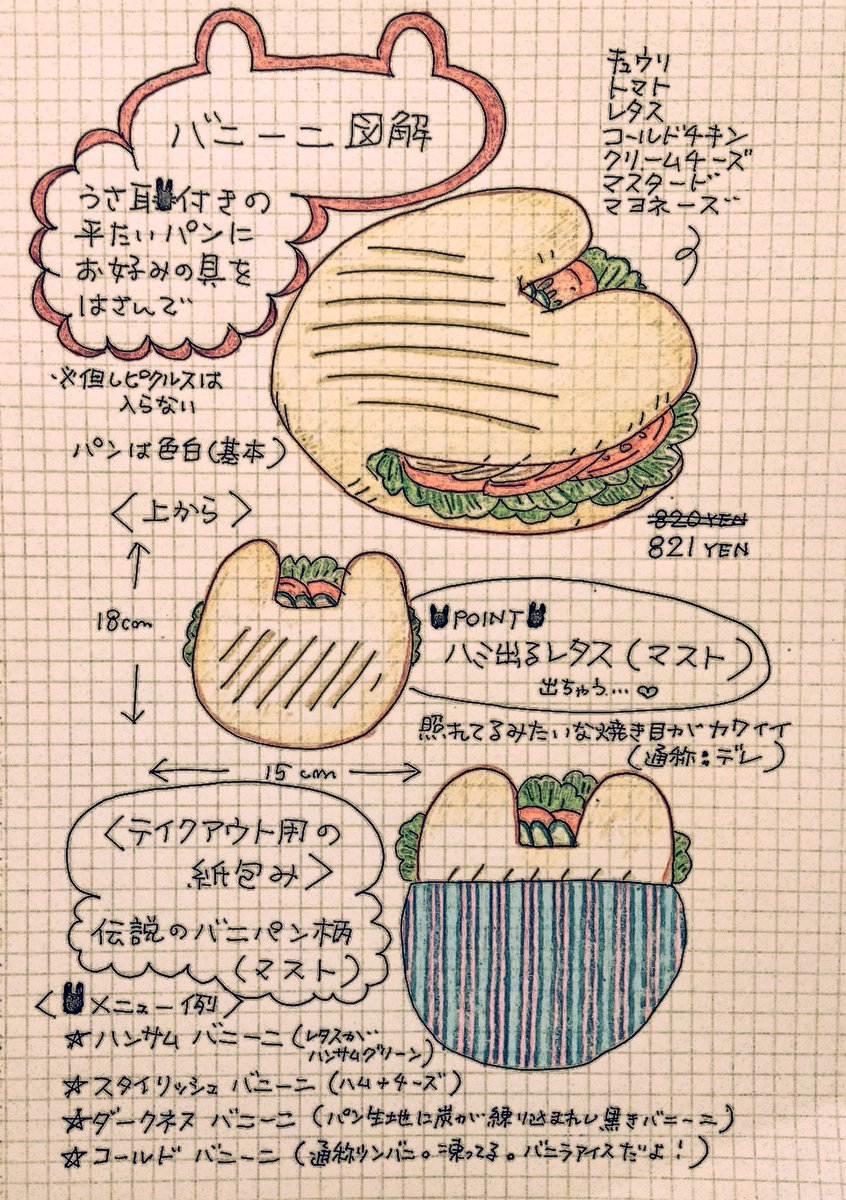 バニーニ図解
うさ耳付きの
平たいパンに
お好みの具を
はさんで
※但しピクルスは
入らない
パンは色白(基本)
キュウリ
トマト
レタス
コールドチキン
クリームチーズ
マスタード
マヨネーズ
820YEN
821YEN
〈上から〉
18cm
15cm
POINT
ハミ出るレタス(マスト)
出ちゃう…♡
照れてるみたいな焼き目がカワイイ
(通称:デレ)
〈テイクアウト用の
紙包み〉
伝説のバニパン柄
(マスト)
〈メニュー例〉
☆ハンサム バニーニ(レタスが
ハンサムグリーン)
☆スタイリッシュ バニーニ(ハム+チーズ)
☆ダークネス バニーニ(パン生地に炭が練り込まれし黒きバニーニ)
☆コールド バニーニ(通称ツンバニ。凍ってる。バニラアイスだよ!)